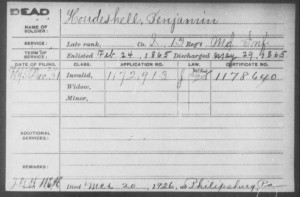 DEAD
NAME OF SOLDIER: Houdeshell, Benjamin
SERVICE: Late rank, Co. D, 13 Reg't Md Inf
TERM OF SERVICE: Enlisted Feb 24, 1865 Discharged May 29, 1865
DATE OF FILING. CLASS. APPLICATION NO. LAW. CERTIFICATE NO.
Invalid, 1172,913 1178640
Widow,
Minor,
ADDITIONAL SERVICES:
REMARKS:
Died Mch 20, 1926, at Philipsburg, Pa